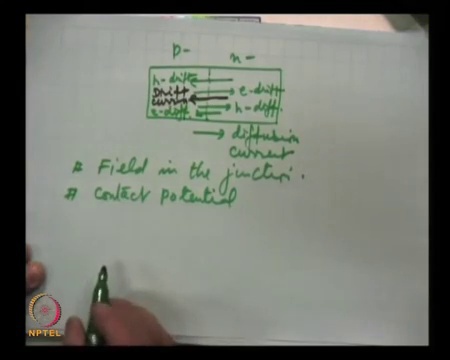 p- n-
h-drift
Drift e-drift
Current h-diff.
e-diff.
diffusion
current
# Field in the junction.
# Contact Potential
NPTEL